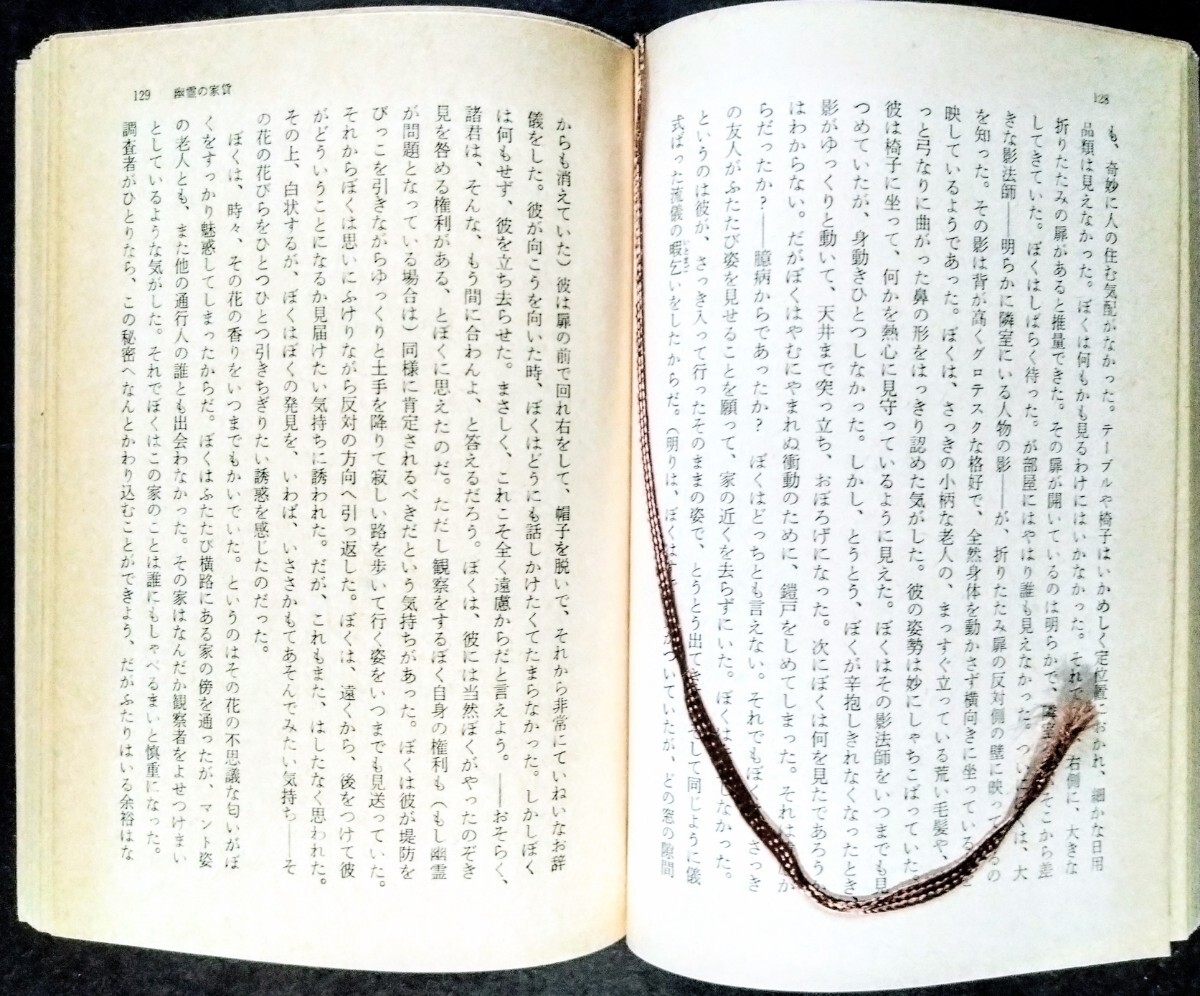 128
も、奇妙に人の住む気配がなかった。テーブルや椅子はいかめしく定位置におかれ、細かな日用
品類は見えなかった。ぼくは何もかも見るわけにはいかなかった。それで 右側に、大きな
折りたたみの扉があると推量できた。その扉が開いているのは明らかで、隣室 そこから差
してきていた。ぼくはしばらく待った。が部屋にはやはり誰も見えなかった。ついに は、大
きな影法師――明らかに隣室にいる人物の影――が、折りたたみ扉の反対側の壁に映って るの
を知った。その影は背が高くグロテスクな格好で、全然身体を動かさず横向きに坐っている
映しているようであった。ぼくは、さっきの小柄な老人の、まっすぐ立っている荒い毛髪や、
っと弓なりに曲がった鼻の形をはっきり認めた気がした。彼の姿勢は妙にしゃちこばっていた。
彼は椅子に坐って、何かを熱心に見守っているように見えた。ぼくはその影法師をいつまでも見
つめていたが、身動きひとつしなかった。しかし、とうとう、ぼくが辛抱しきれなくなったとき
影がゆっくりと動いて、天井まで突っ立ち、おぼろげになった。次にぼくは何を見たであろう
はわからない。だがぼくはやむにやまれぬ衝動のために、鎧戸をしめてしまった。それは
らだったか?――臆病からであったか? ぼくはどっちとも言えない。それでもぼ さっき
の友人がふたたび姿を見せることを願って、家の近くを去らずにいた。ぼくは しなかった。
というのは彼が、さっき入って行ったそのままの姿で、とうとう出てき して同じように儀
式ばった流儀の暇乞いをしたからだ。(明りは、ぼくは ついていたが、どの窓の隙間
129 幽霊の家賃
からも消えていた)彼は扉の前で回れ右をして、帽子を脱いで、それから非常にていねいなお辞
儀をした。彼が向こうを向いた時、ぼくはどうにも話しかけたくてたまらなかった。しかしぼく
は何もせず、彼を立ち去らせた。まさしく、これこそ全く遠慮からだと言えよう。――おそらく、
諸君は、そんな、もう間に合わんよ、と答えるだろう。ぼくは、彼には当然ぼくがやったのぞき
見を咎める権利がある、とぼくに思えたのだ。ただし観察をするぼく自身の権利も(もし幽霊
が問題となっている場合は)同様に肯定されるべきだという気持ちがあった。ぼくは彼が堤防を
びっこを引きながらゆっくりと土手を降りて寂しい路を歩いて行く姿をいつまでも見送っていた。
それからぼくは思いにふけりながら反対の方向へ引っ返した。ぼくは、遠くから、後をつけて彼
がどういうことになるか見届けたい気持ちに誘われた。だが、これもまた、はしたなく思われた。
その上、白状するが、ぼくはぼくの発見を、いわば、いささかもてあそんでみたい気持ち――そ
の花の花びらをひとつひとつ引きちぎりたい誘惑を感じたのだった。
ぼくは、時々、その花の香りをいつまでもかいでいた。というのはその花の不思議な匂いがぼ
くをすっかり魅惑してしまったからだ。ぼくはふたたび横路にある家の傍を通ったが、マント姿
の老人とも、また他の通行人の誰とも出会わなかった。その家はなんだか観察者をよせつけまい
としているような気がした。それでぼくはこの家のことは誰にもしゃべるまいと慎重になった。
調査者がひとりなら、この秘密へなんとかわり込むことができよう、だがふたりはいる余裕はな